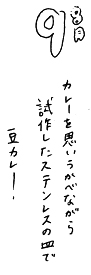 9
8
月
カレーを思いうかべながら
試作したステンレスの皿で
豆カレー!